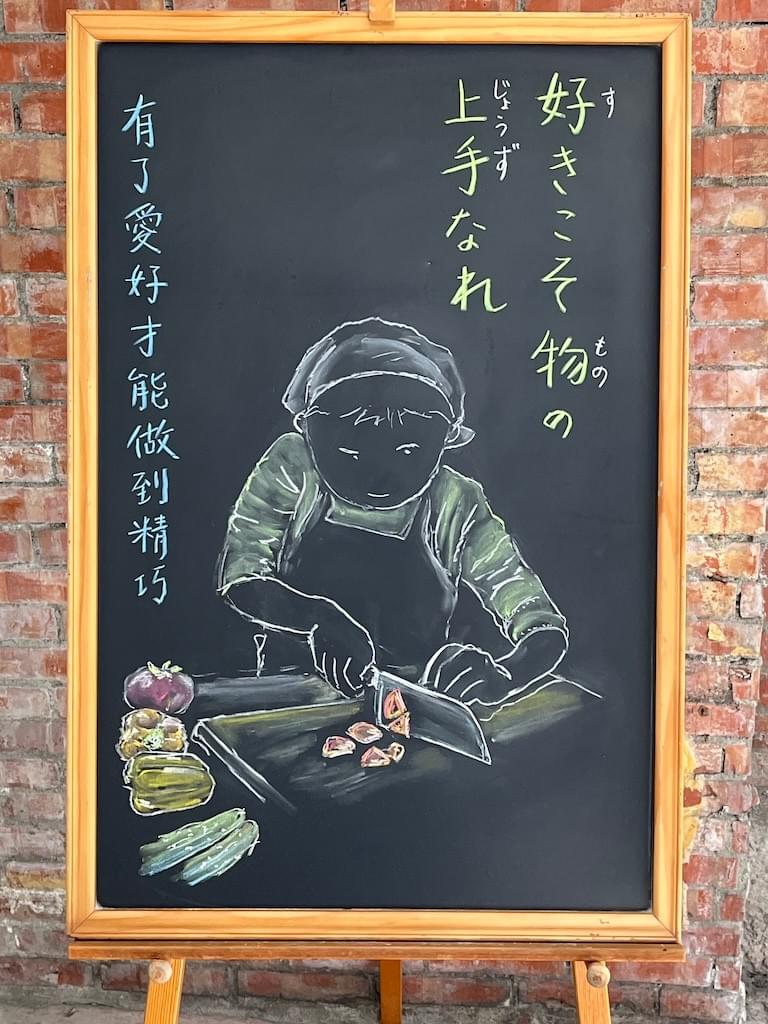 好きこそ物の
す
もの
上手なれ
じょうず
有了愛好才能做到精巧